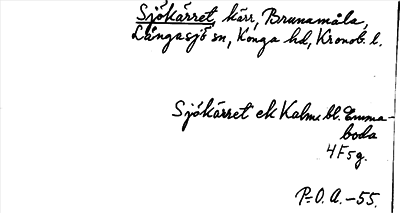 Sjökärret, kärr, Brunamåla,
Långasjö sn, Konga hd, Kronob. l.
Sjökärret ek Kalm. bl. Emma-
boda
4F5g.
P.-O. A. -55.